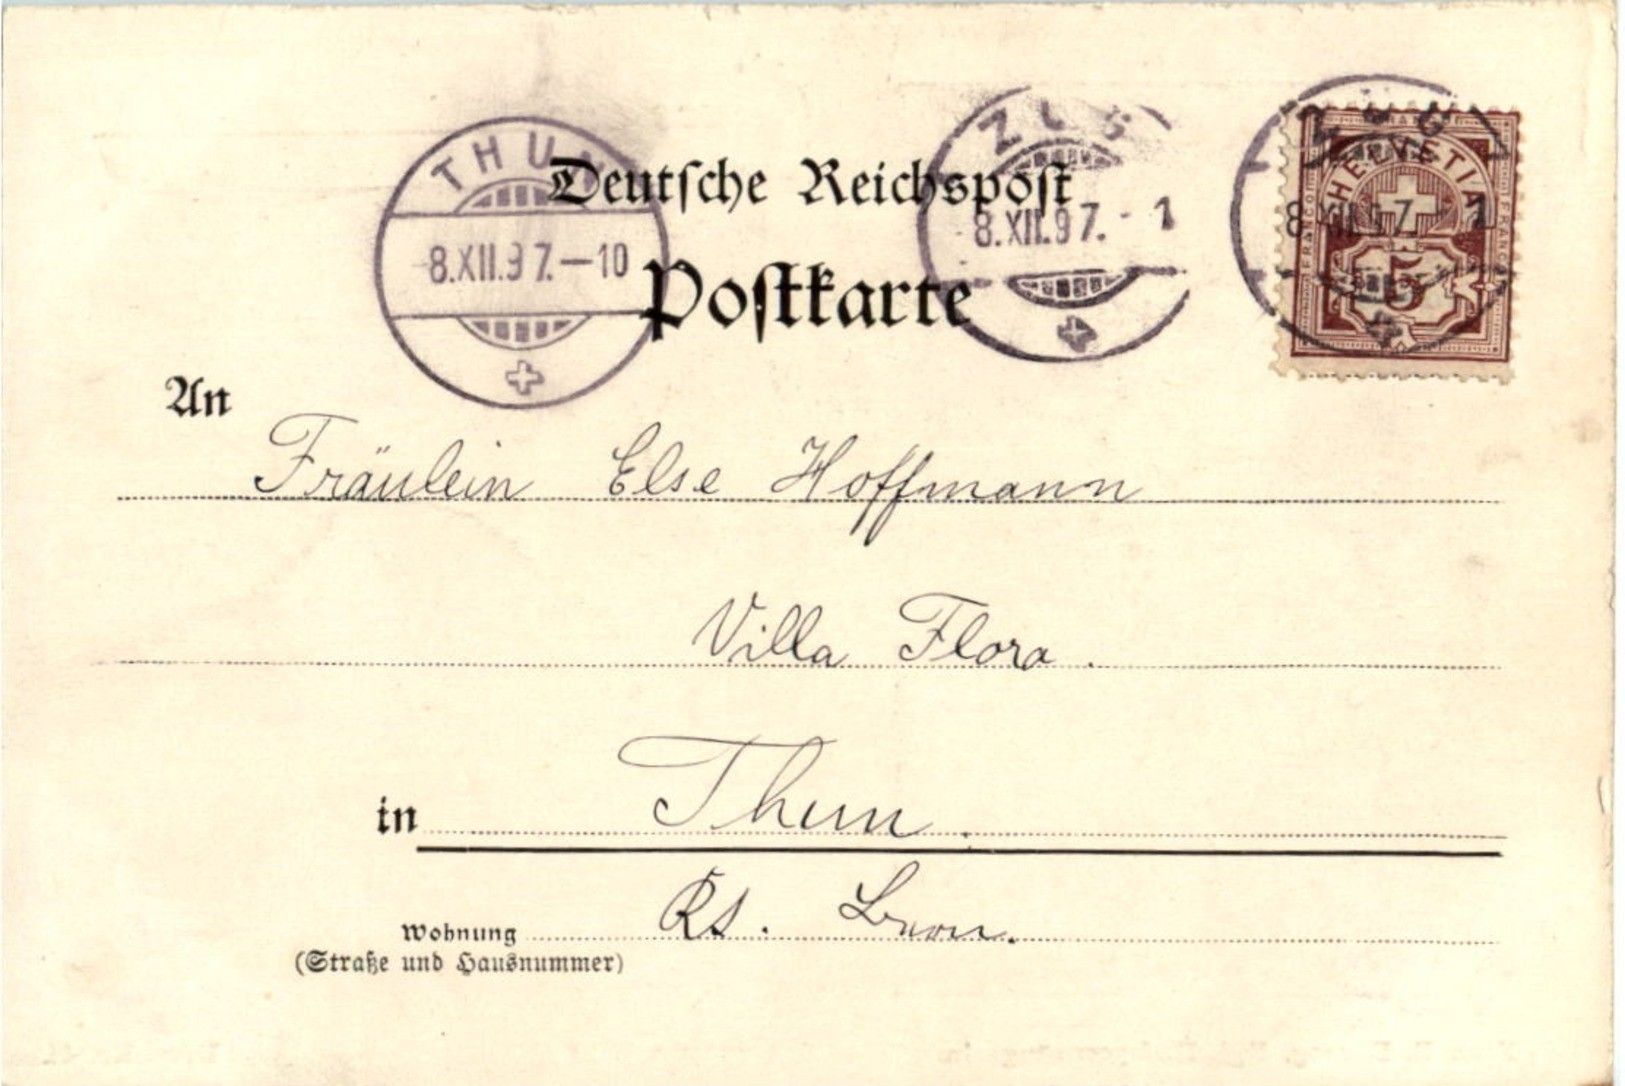 THUN
8.XII.97.—10
ZUG
8.XII.97.-1
ZUG
8.XII.97.-1
FRANCO HELVETIA FRANCO
5
Deutsche Reichspost
Postkarte
An
Fräulein Else Hoffmann
Villa Flora.
in Thun.
Wohnung
(Straße und Hausnummer)